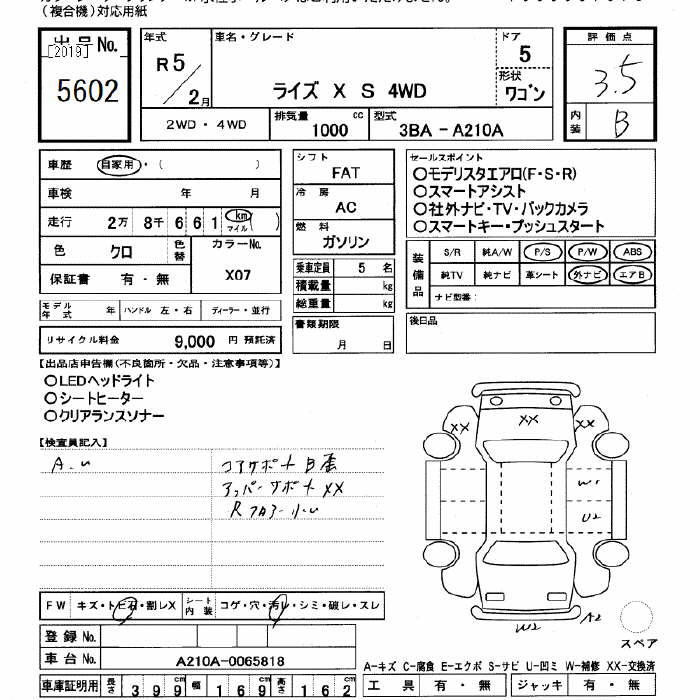 (複合機)対応用紙
出品No.
[2019]
5602
年式
R5/2月
車名・グレード
ライズ X S 4WD
ドア
5
形状
ワゴン
評価点
3.5
内装
B
2WD・4WD
排気量
1000 cc
型式
3BA-A210A
車歴 自家用・( )
車検 年 月
走行 2万 8千 6 6 1 km マイル ( )
色 クロ
色替
カラーNo.
X07
保証書 有・無
モデル年式 年 ハンドル 左・右 ディーラー・並行
リサイクル料金 9,000 円 預託済
シフト
FAT
冷房
AC
燃料
ガソリン
乗車定員 5 名
積載量 kg
総重量 kg
書類期限
月 日
セールスポイント
○モデリスタエアロ(F・S・R)
○スマートアシスト
○社外ナビ・TV・バックカメラ
○スマートキー・プッシュスタート
装備品
S/R 純A/W P/S P/W ABS
純TV 純ナビ 革シート 外ナビ エアB
ナビ型番:
後日品
【出品店申告欄(不良箇所・欠品・注意事項等)】
○LEDヘッドライト
○シートヒーター
○クリアランスソナー
【検査員記入】
A.u
コアサポート曲歪
アッパーサポートXX
Rフロアー小u
XX
XX
XX
W1
U2
W2
A2
スペア
FW キズ・トビ石・割レX
シート内装 コゲ・穴・汚レ・シミ・破レ・スレ
登録No.
車台No. A210A-0065818
車庫証明用 長さ 399cm 幅 169cm 高さ 162cm
A-キズ C-腐食 E-エクボ S-サビ U-凹ミ W-補修 XX-交換済
工具 有・無 ジャッキ 有・無